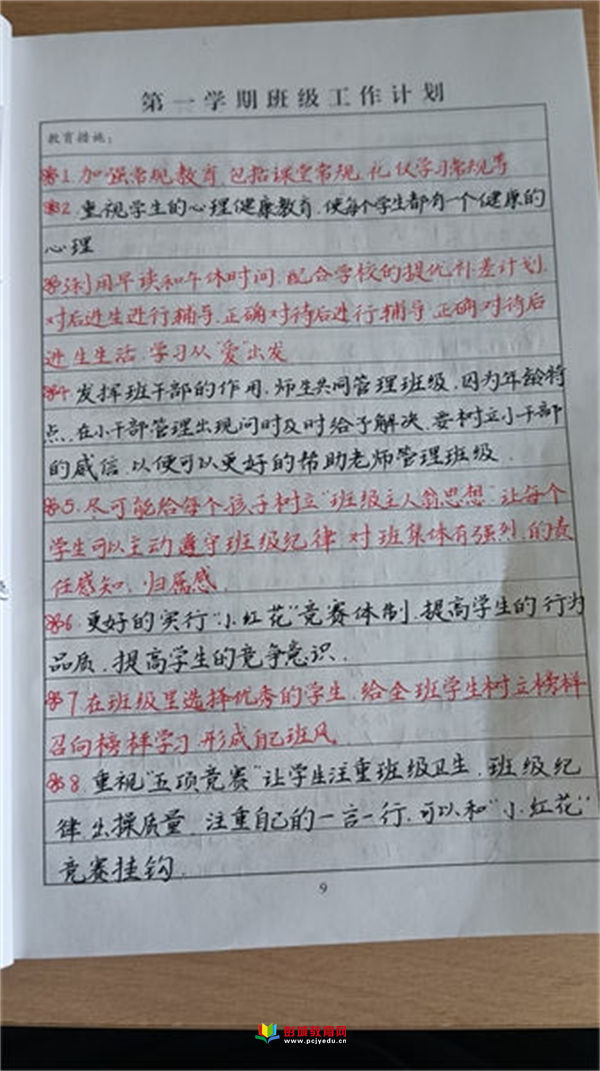 第一学期班级工作计划
教育措施:
1.加强常规教育,包括课堂常规,礼仪学习常规等
2.重视学生的心理健康教育,使每个学生都有一个健康的
心理
3.利用早读和午休时间,配合学校的提优补差计划,
对后进生进行辅导,正确对待后进行辅导,正确对待后
进生生活,学习从"爱"出发
4.发挥班干部的作用,师生共同管理班级,因为年龄特
点,在小干部管理出现问时及时给予解决,要树立小干部
的威信,以便可以更好的帮助老师管理班级.
5.尽可能给每个孩子树立"班级主人翁思想"让每个
学生可以主动遵守班级纪律,对班集体有强烈,的责
任感知,归属感.
6.更好的实行"小红花"竞赛体制,提高学生的行为
品质,提高学生的竞争意识.
7在班级里选择优秀的学生,给全班学生树立榜样
召向榜样学习,形成自己班风
8.重视"五项竞赛"让学生注重班级卫生,班级纪
律,出操质量,注重自己的一言一行,可以和"小红花"
竞赛挂钩.
9
彭城教育网
www.pcjyedu.cn